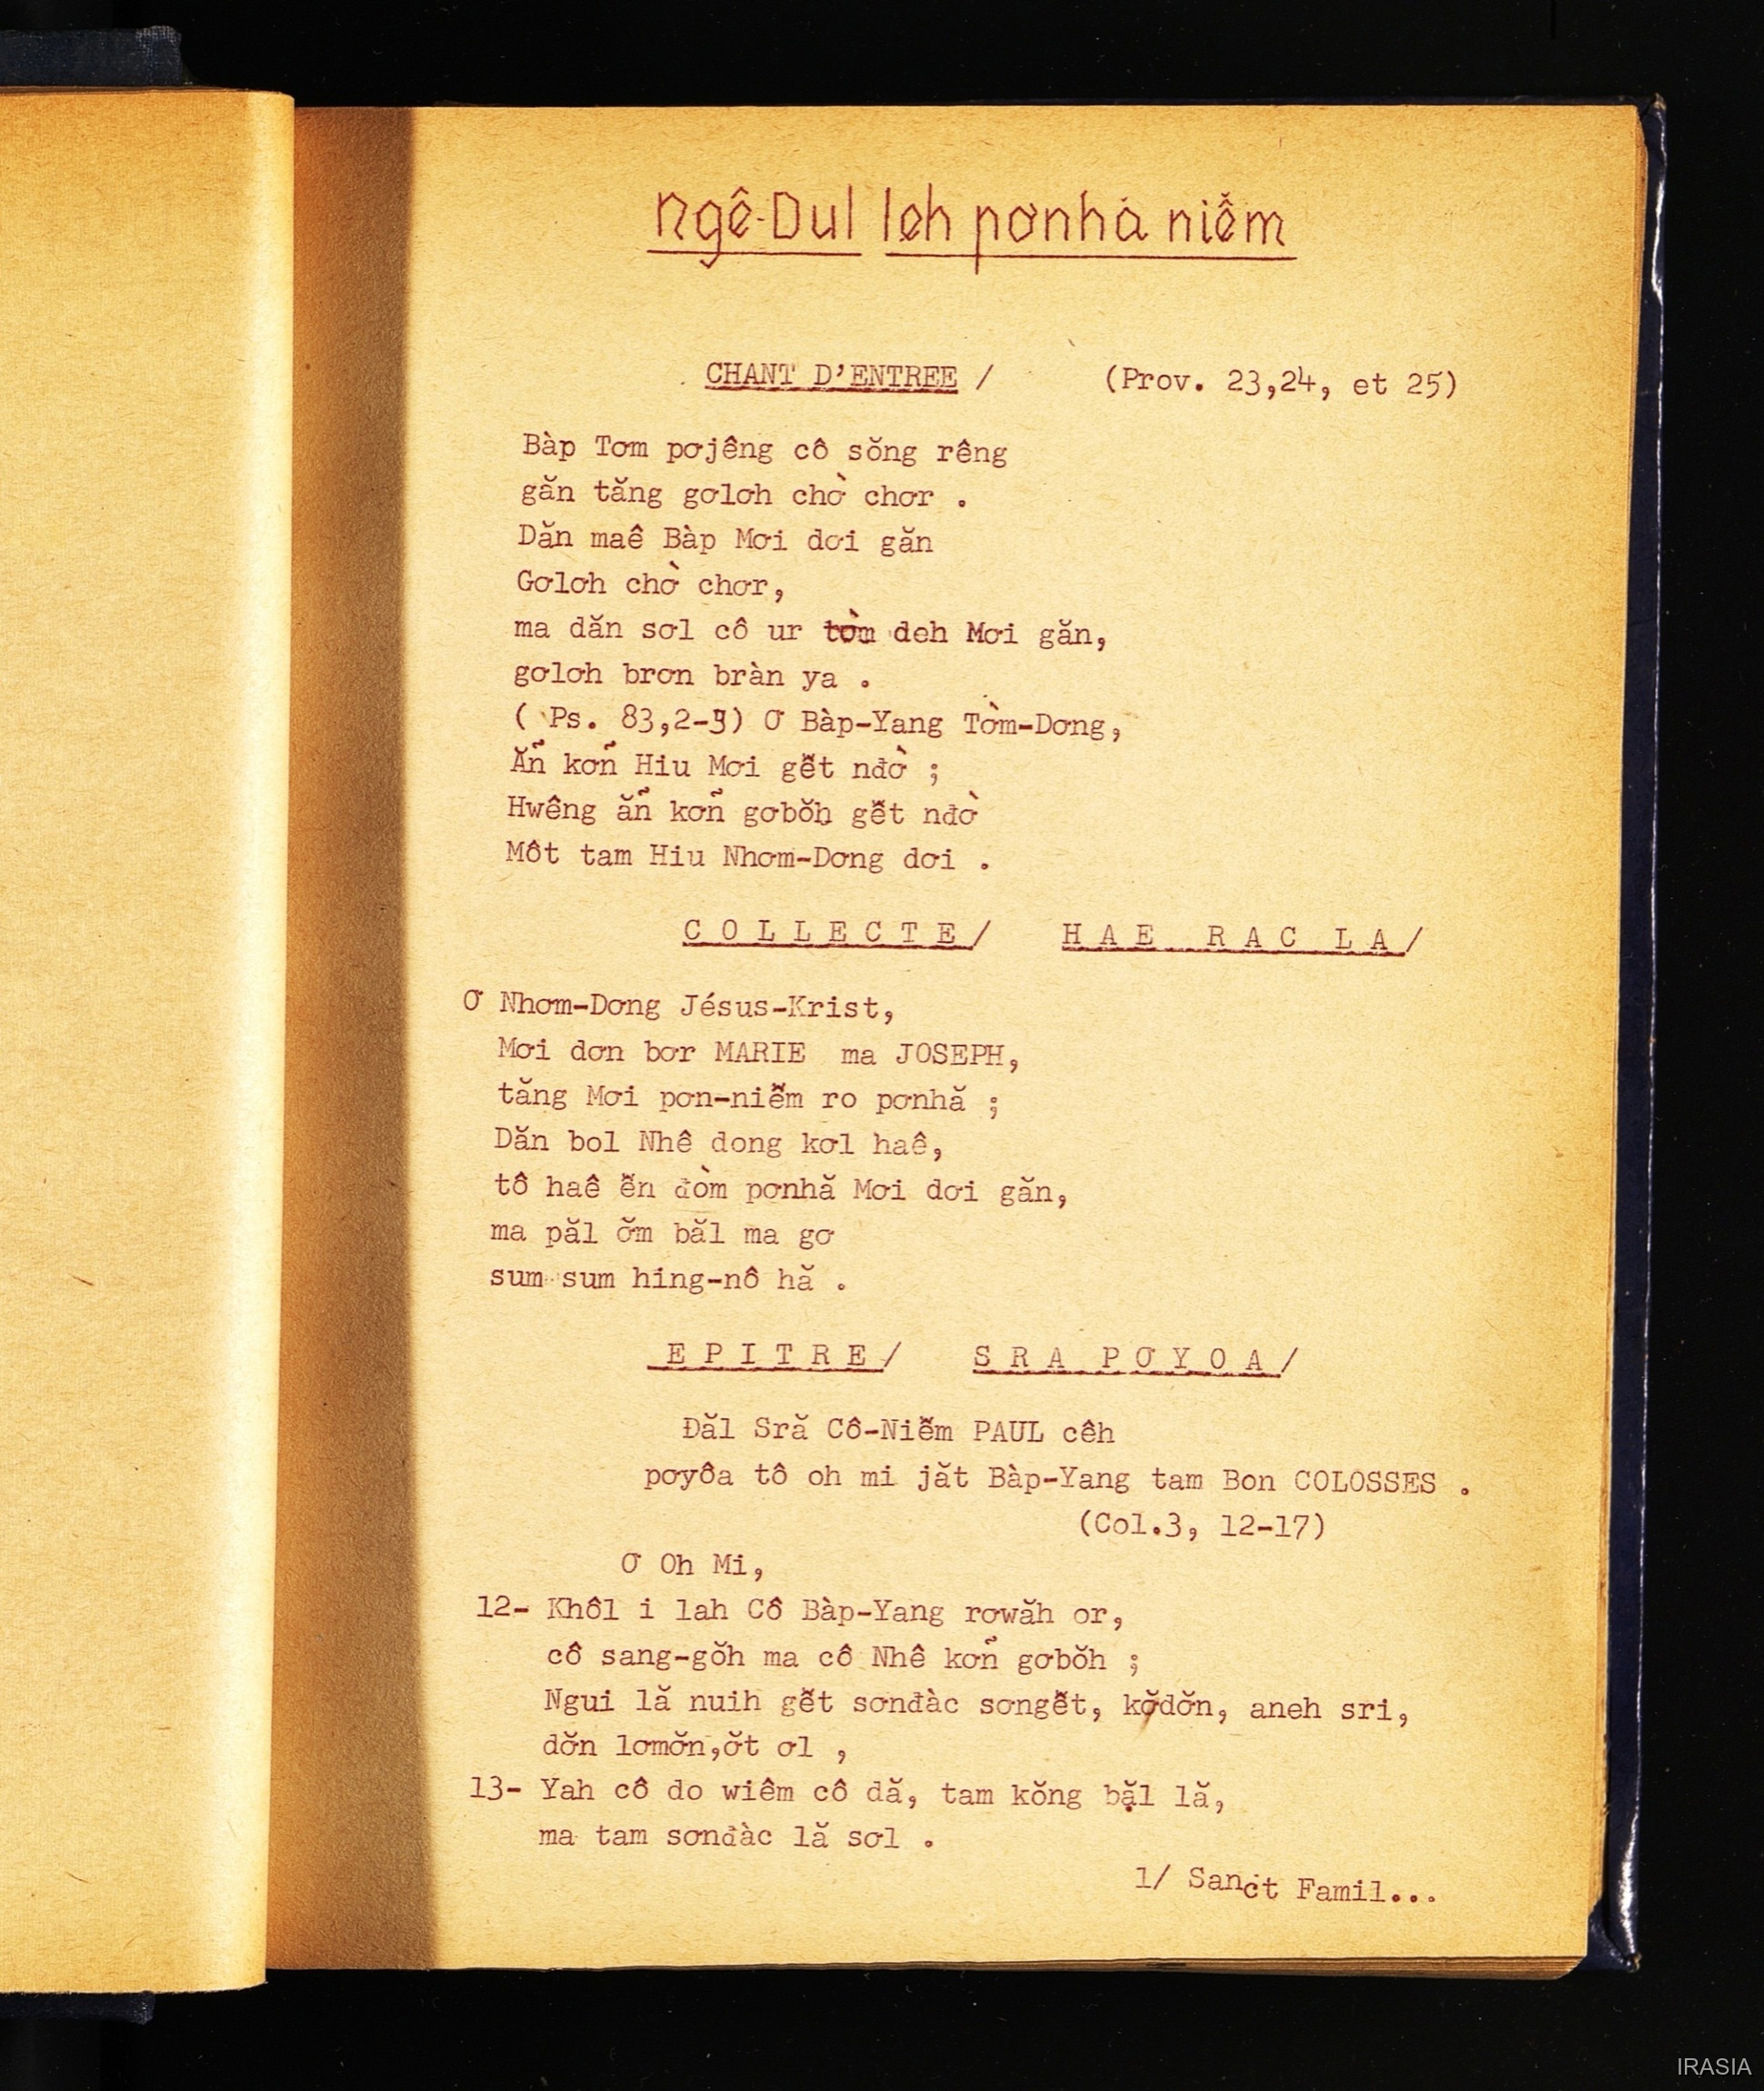 Ngê-Dul leh pơnhả niễm
CHANT D'ENTREE / (Prov. 23,24, et 25)
Bàp Tơm pơjêng cô sŏng rêng
găn tăng gơlơh chờ chơr .
Dăn maê Bàp Mơi dơi găn
Gơlơh chờ chơr,
ma dăn sơl cô ur tờm deh Mơi găn,
gơlơh brơn bràn ya .
( Ps. 83,2-3) Ơ Bàp-Yang Tờm-Dơng,
Ăñ kơñ Hiu Mơi gễt nđờ ;
Hwêng ăñ kơñ gơbŏh gễt nđờ
Môt tam Hiu Nhơm-Dơng dơi .
COLLECTE/ HAE RAC LA/
Ơ Nhơm-Dơng Jésus-Krist,
Mơi dơn bơr MARIE ma JOSEPH,
tăng Mơi pơn-niễm ro pơnhă ;
Dăn bol Nhê dong kơl haê,
tô haê ễn đòm pơnhă Mơi dơi găn,
ma păl ơ̆m băl ma gơ
sum sum hing-nô hă .
EPITRE/ SRA PƠYOA/
Đăl Sră Cô-Niễm PAUL cêh
pơyôa tô oh mi jăt Bàp-Yang tam Bon COLOSSES .
(Col.3, 12-17)
Ơ Oh Mi,
12- Khôl i lah Cô Bàp-Yang rơwăh or,
cô sang-gŏh ma cô Nhê kơñ gơbŏh ;
Ngui lă nuih gễt sơnđàc sơngễt, kơ̆dơ̆n, aneh sri,
dơ̆n lơmơ̆n,ơ̆t ơl ,
13- Yah cô do wiêm cô dă, tam kŏng bặl lă,
ma tam sơnđàc lă sơl .
1/ Sanct Famil...
IRASIA